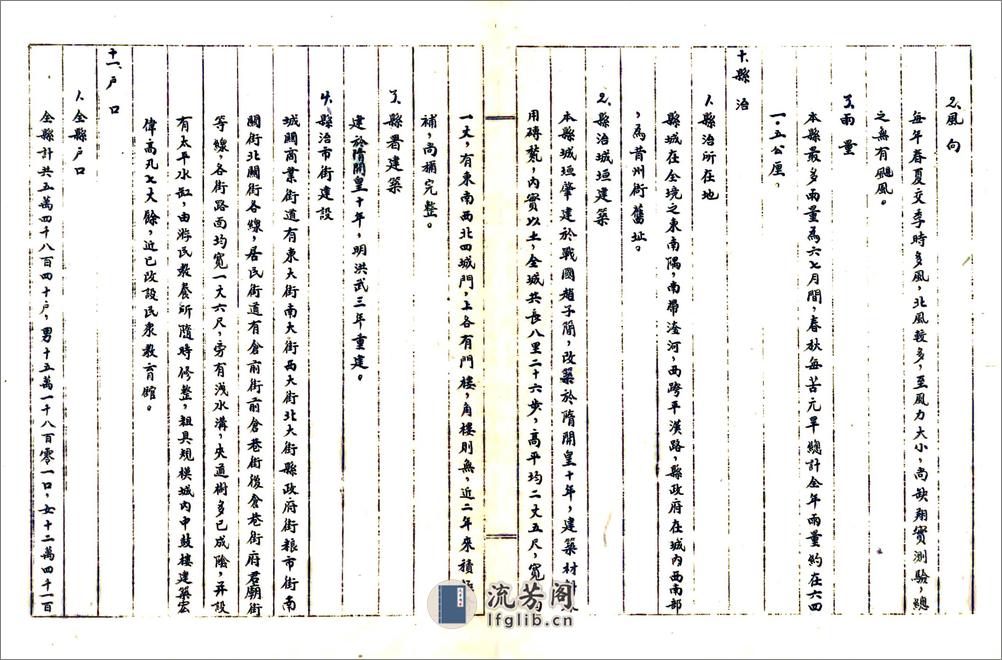 2、風向
每年春夏交季時多風，北風較多，至風力大小，尚缺翔實測驗，總
之無有颶風。
3、雨量
本縣最多雨量為六七月間，春秋每苦亢旱總計全年雨量約在六四
一．五公厘，
十、縣治
1、縣治所在地
縣城在全境之東南隅，南帶滏河，西跨平漢路，縣政府在城內西南部
，為昔州街舊址。
2、縣治城垣建築
本縣城垣肇建於戰國趙子簡，改築於隋開皇十年，建築材料
用磚甃，內實以土，全城共長八里二十六步，高平均二丈五尺，寬
一丈，有東南西北四城門，上各有門樓，角樓則無，近二年來積極
補，尚稱完整。
3、縣署建築
建於隋開皇十年，明洪武三年重建。
4、縣治市街建設
城關商業街道有東大街南大街西大街北大街縣政府街粮市街南
關街北關街各線，居民街道有倉前街前倉巷街後倉巷街府君廟街
等線，各街路面均寬一丈六尺，旁有淺水溝，夾道樹多已成陰，并設
有太平水缸，由游民教養所隨時修整，粗具規模城內中鼓樓建築宏
偉高凡七丈餘，近已改設民眾教育館。
十一、戶口
1、全縣戶口
全縣計共五萬四千八百四十戶，男十五萬一千八百零一口，女十二萬四千一百
流芳阁
lfglib.cn